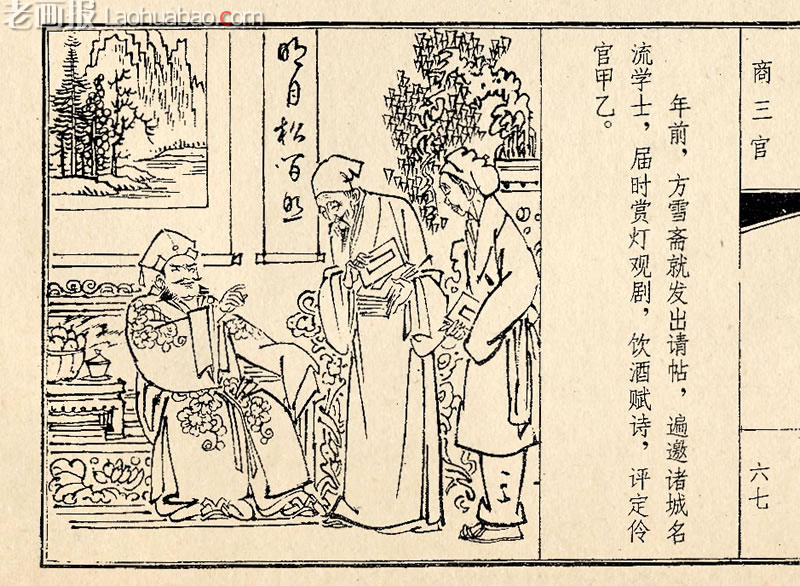 老画报 Laohuabao.com
商三官
六七
年前，方雪斋就发出请帖，遍邀诸城名
流学士，届时赏灯观剧，饮酒赋诗，评定伶
官甲乙。
明月松